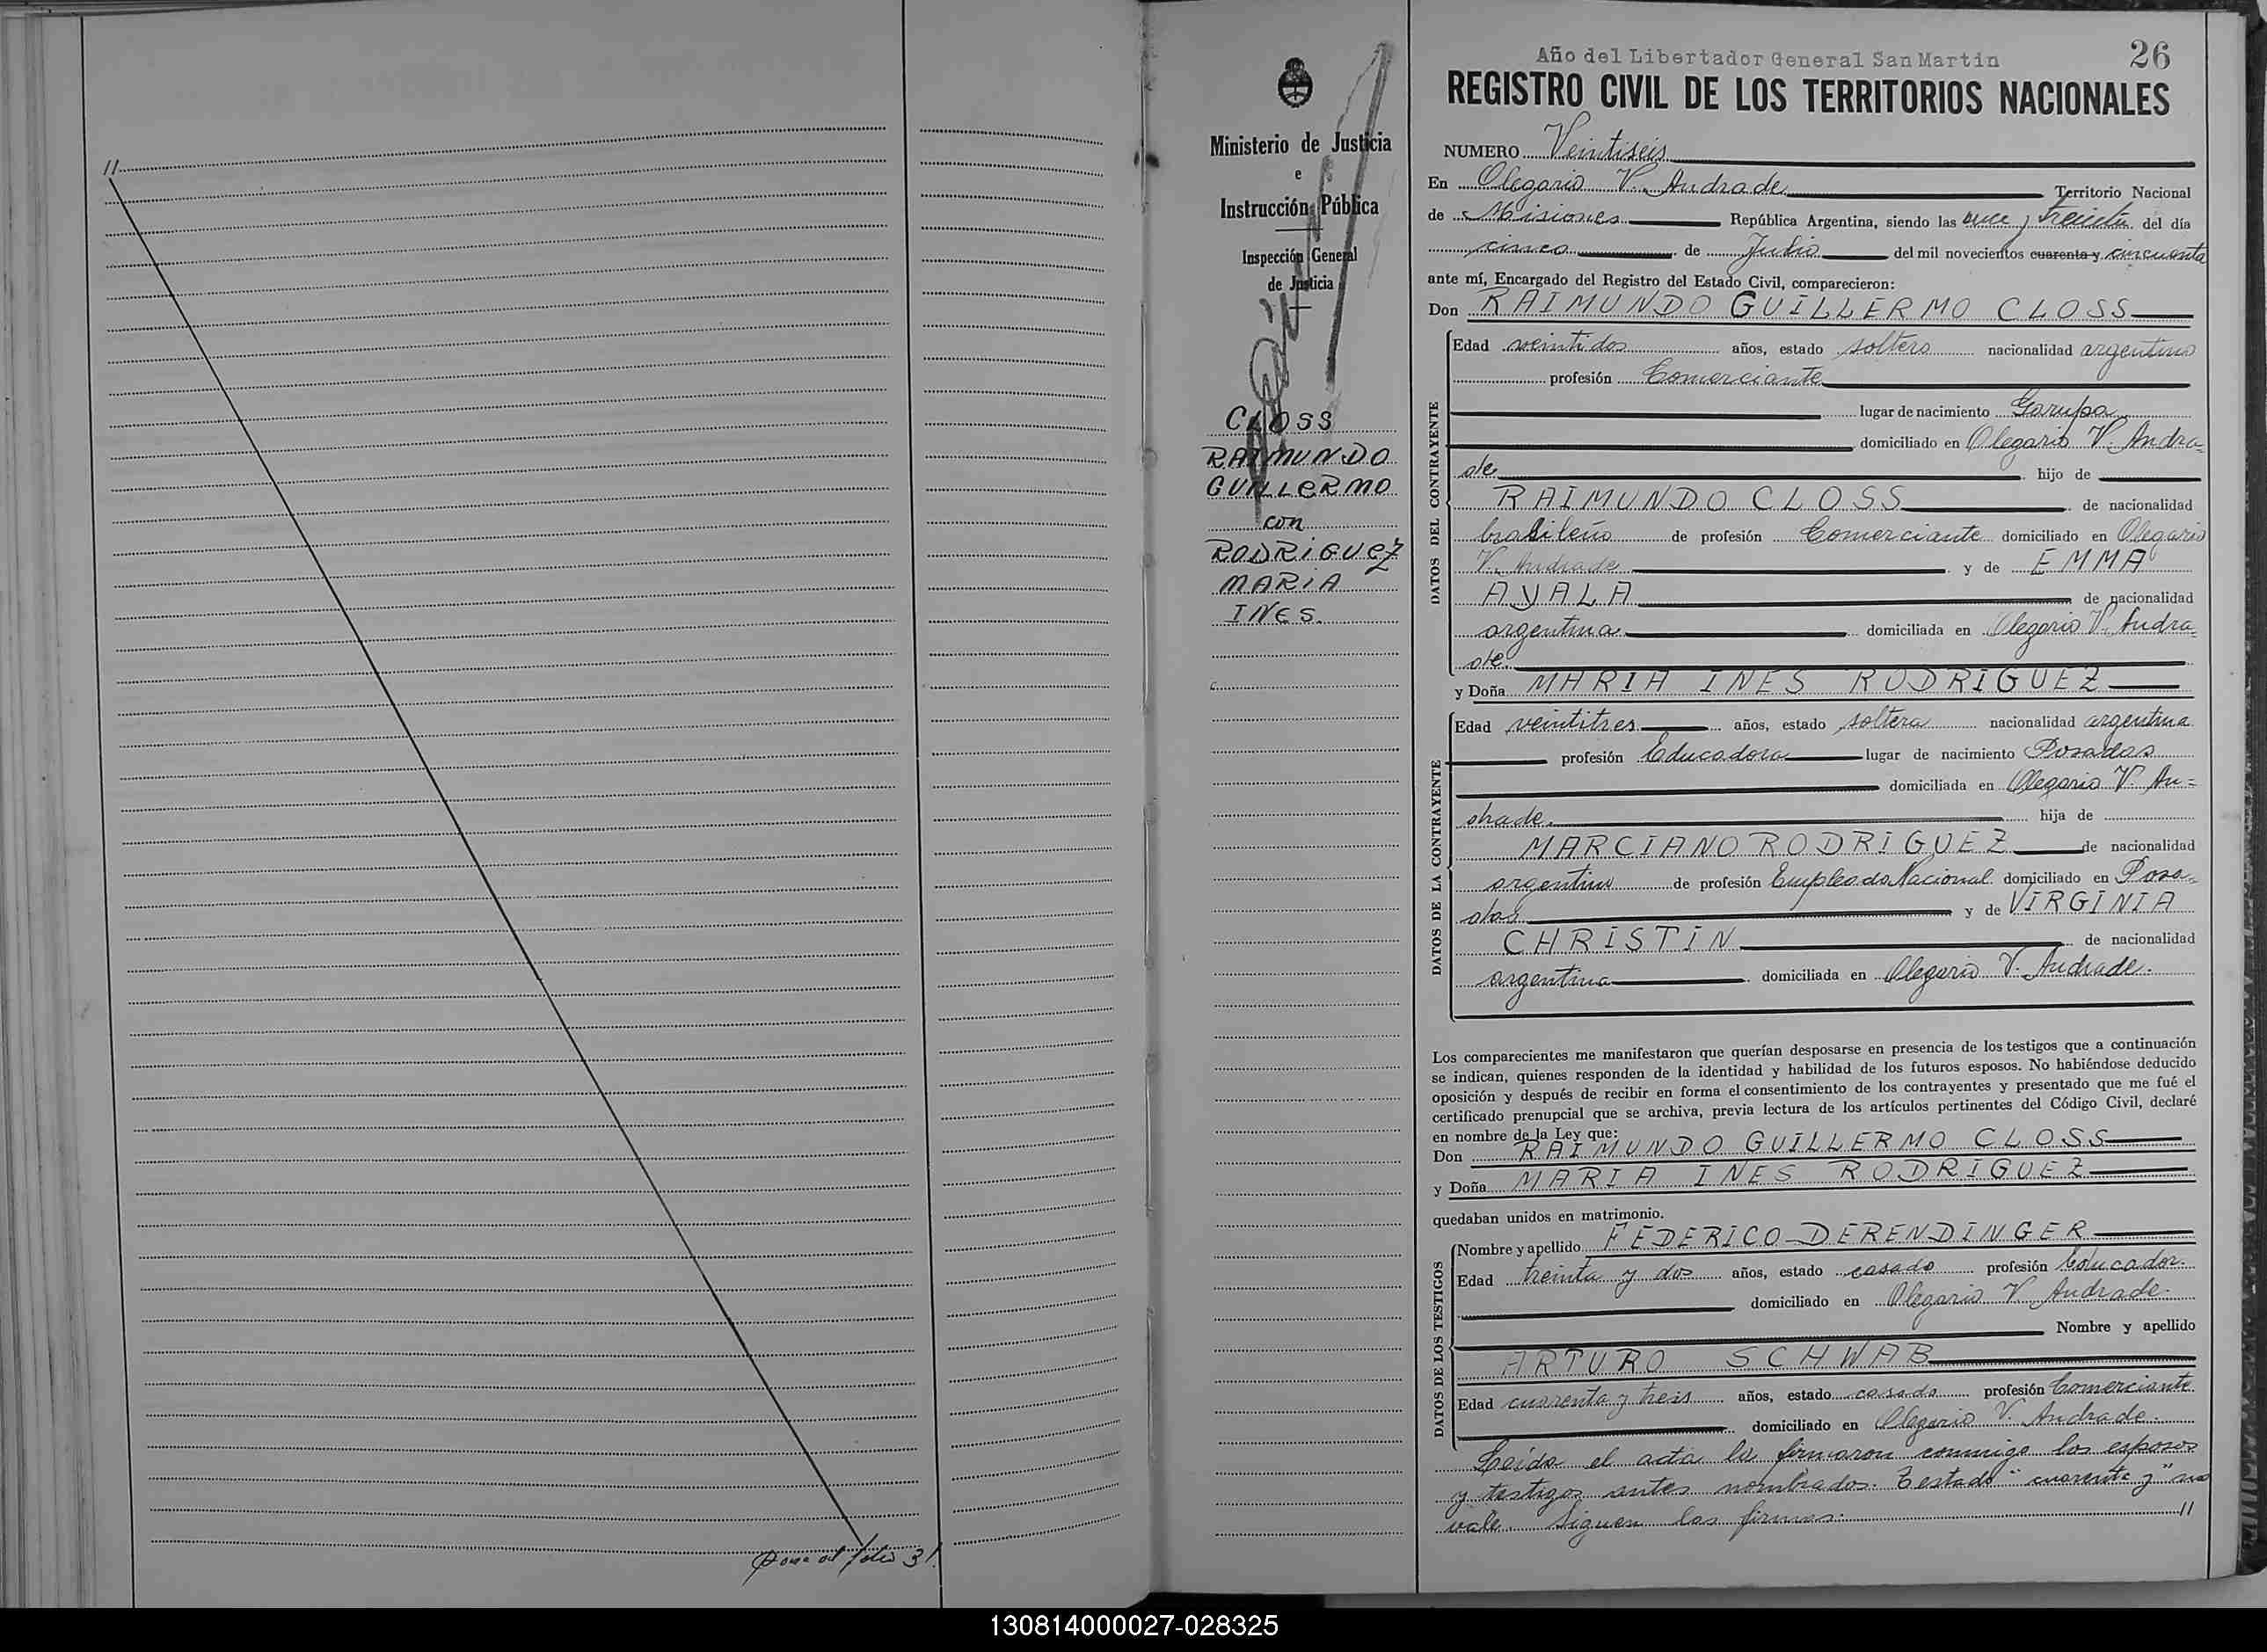 //
Pasa al folio 31.
Ministerio de Justicia
e
Instrucción Pública
Inspección General
de Justicia
CLOSS
RAIMUNDO
GUILLERMO
con
RODRIGUEZ
MARIA
INES.
Año del Libertador General San Martín
26
REGISTRO CIVIL DE LOS TERRITORIOS NACIONALES
NUMERO Veintiseis
En Olegario V. Andrade Territorio Nacional
de Misiones República Argentina, siendo las once y treinta del día
cinco de Julio del mil novecientos cuarenta y cincuenta
ante mí, Encargado del Registro del Estado Civil, comparecieron:
Don RAIMUNDO GUILLERMO CLOSS
DATOS DEL CONTRAYENTE
Edad veintidos años, estado soltero nacionalidad argentino
profesión Comerciante
lugar de nacimiento Garupa
domiciliado en Olegario V. Andra-
de hijo de
RAIMUNDO CLOSS de nacionalidad
brasileño de profesión Comerciante domiciliado en Olegario
V. Andrade y de EMMA
AYALA de nacionalidad
argentina domiciliada en Olegario V. Andra-
de.
y Doña MARIA INES RODRIGUEZ
DATOS DE LA CONTRAYENTE
Edad veintitres años, estado soltera nacionalidad argentina
profesión Educadora lugar de nacimiento Posadas
domiciliada en Olegario V. An=
drade. hija de
MARCIANO RODRIGUEZ de nacionalidad
argentino de profesión Empleado Nacional domiciliado en Posa-
das y de VIRGINIA
CHRISTIN de nacionalidad
argentina domiciliada en Olegario V. Andrade.
Los comparecientes me manifestaron que querían desposarse en presencia de los testigos que a continuación
se indican, quienes responden de la identidad y habilidad de los futuros esposos. No habiéndose deducido
oposición y después de recibir en forma el consentimiento de los contrayentes y presentado que me fué el
certificado prenupcial que se archiva, previa lectura de los artículos pertinentes del Código Civil, declaré
en nombre de la Ley que:
Don RAIMUNDO GUILLERMO CLOSS
y Doña MARIA INES RODRIGUEZ
quedaban unidos en matrimonio.
DATOS DE LOS TESTIGOS
Nombre y apellido FEDERICO DERENDINGER
Edad treinta y dos años, estado casado profesión Educador.
domiciliado en Olegario V. Andrade.
Nombre y apellido
ARTURO SCHWAB
Edad cuarenta y tres años, estado casado profesión Comerciante
domiciliado en Olegario V. Andrade.
Leída el acta la firmaron conmigo los esposos
y testigos antes nombrados. Testado "cuarenta y" no
vale. Siguen las firmas: //
130814000027-028325